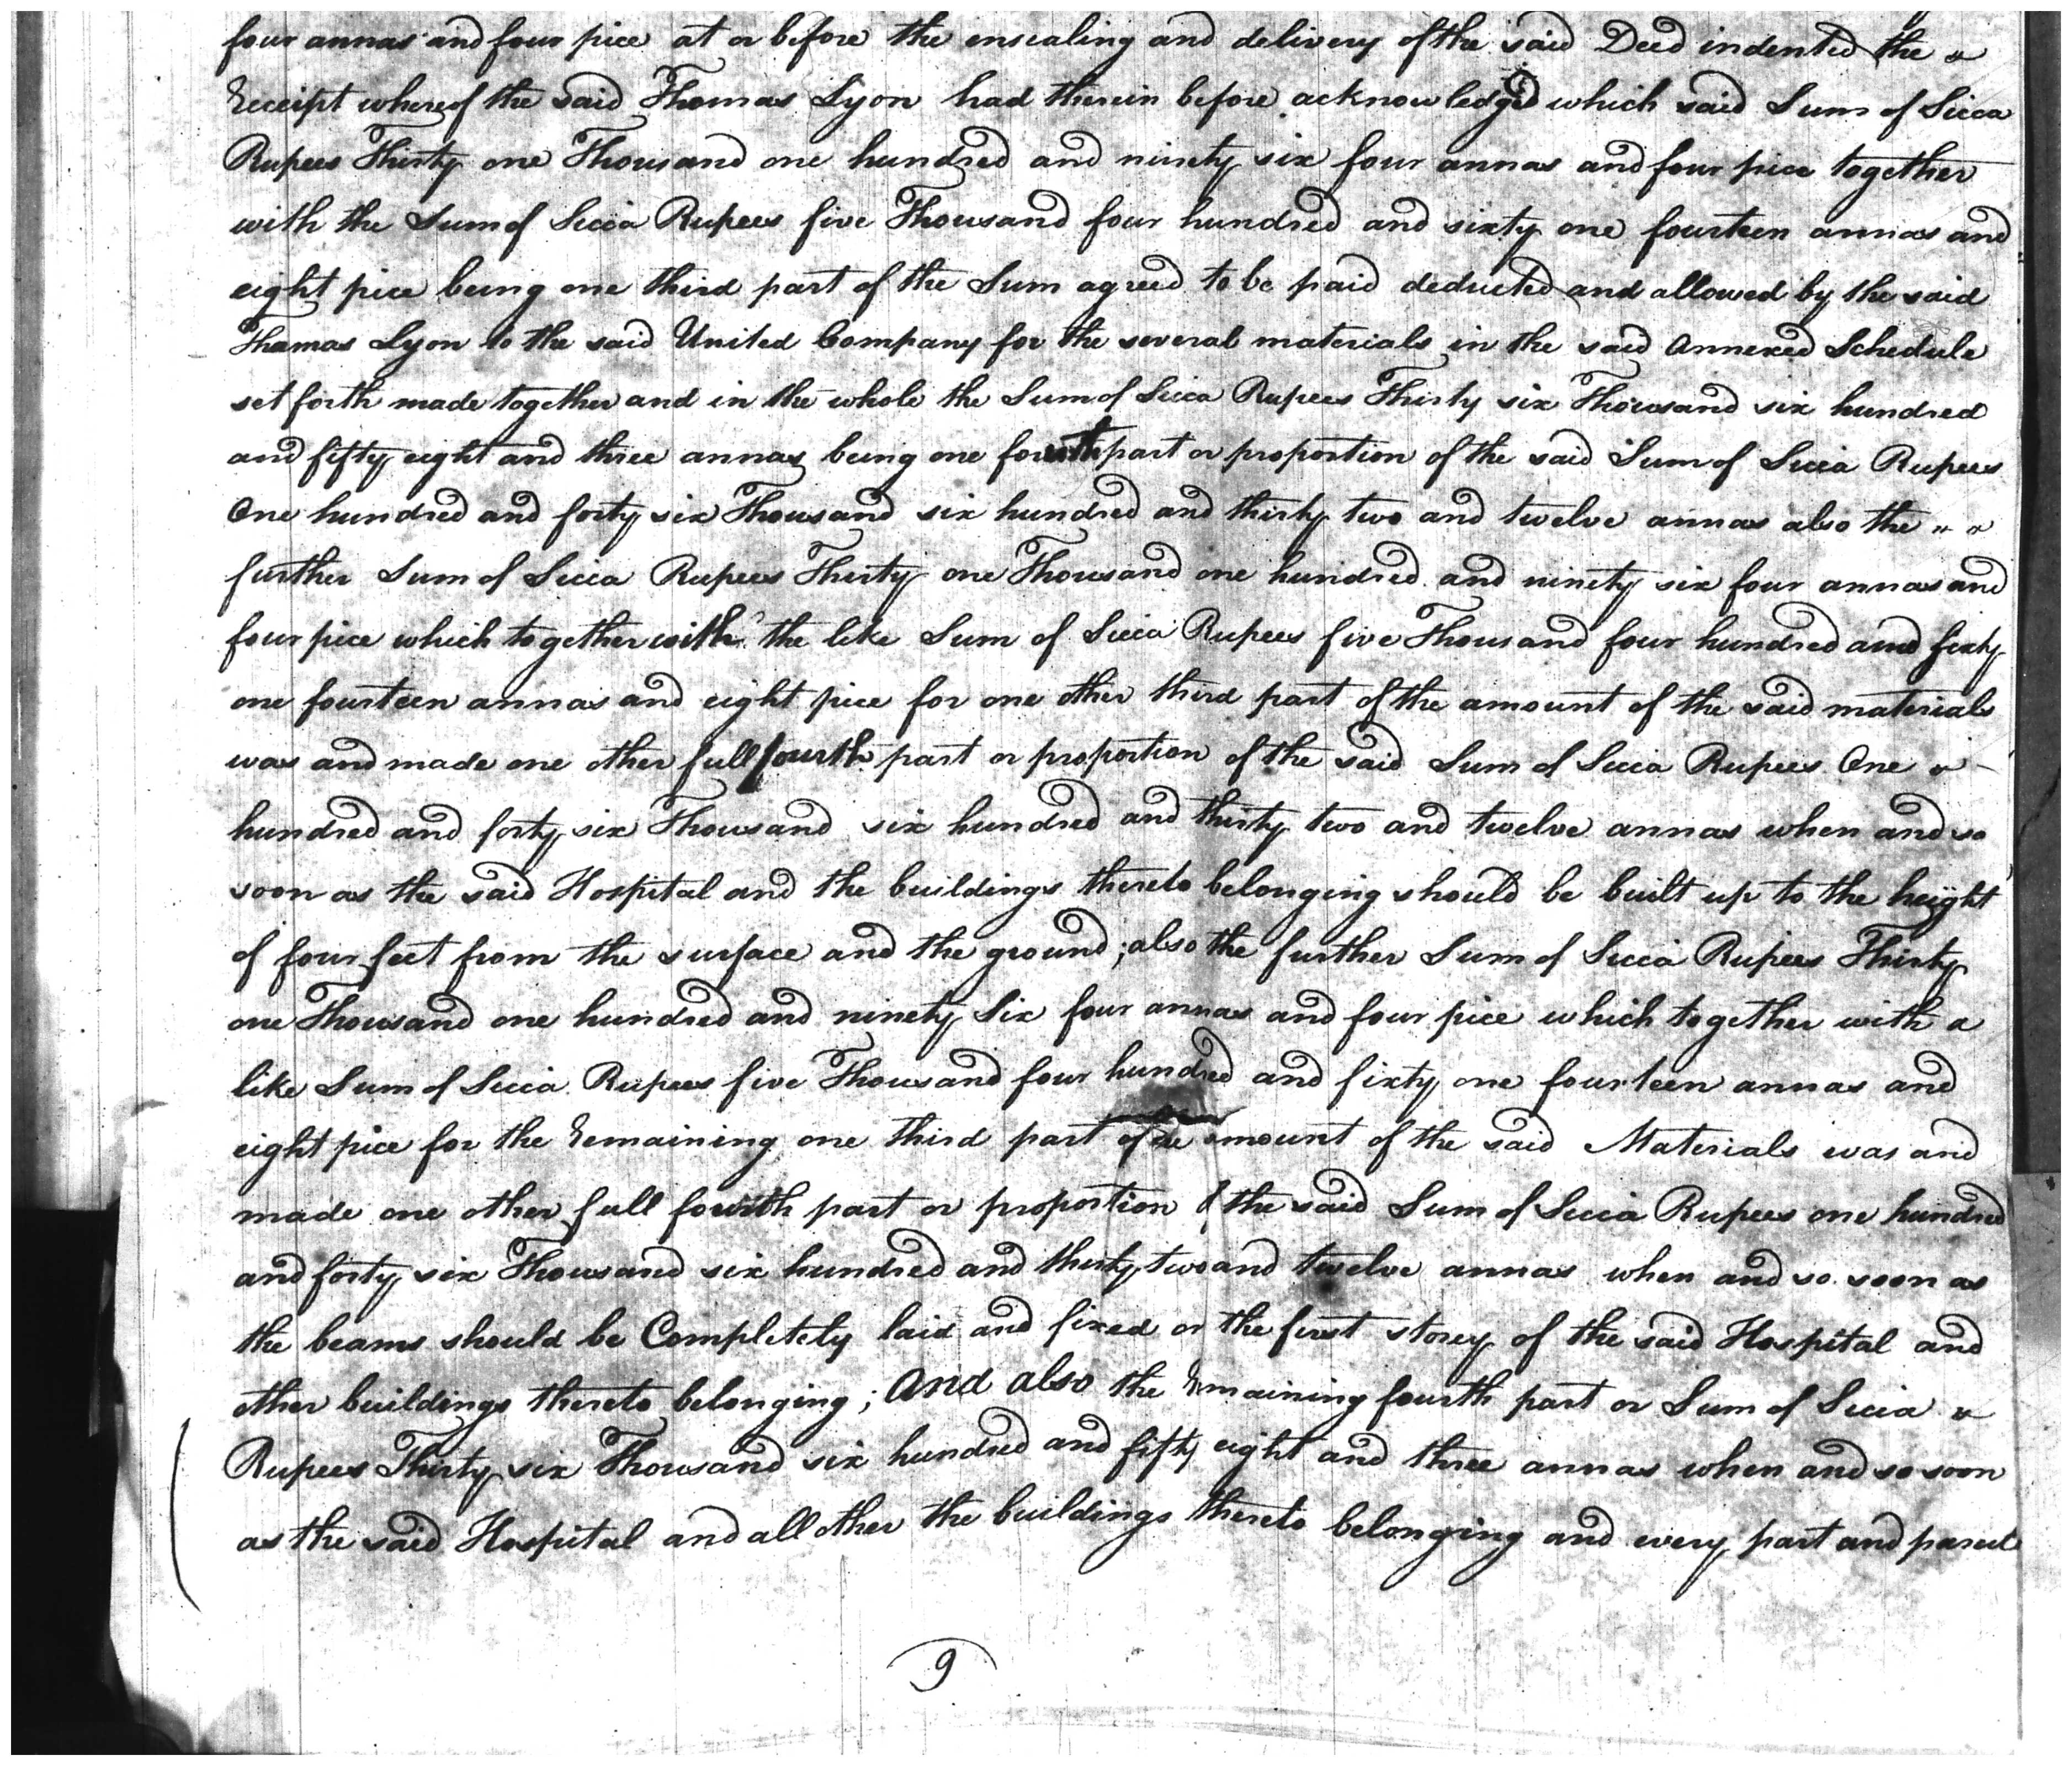 four annas and four pice at or before the ensealing and delivery of the said Deed indented the
Receipt whereof the said Thomas Lyon had therein before acknowledged which said Sum of Sicca
Rupees Thirty one Thousand one hundred and ninety six four annas and four pice together
with the Sum of Sicca Rupees five Thousand four hundred and sixty one fourteen annas and
eight pice being one third part of the Sum agreed to be paid deducted and allowed by the said
Thomas Lyon to the said United Company for the several materials in the said Annexed Schedule
set forth made together and in the whole the Sum of Sicca Rupees Thirty six Thousand six hundred
and fifty eight and three annas being one fourth part or proportion of the said Sum of Sicca Rupees
One hundred and forty six Thousand six hundred and thirty two and twelve annas also the " "
further Sum of Sicca Rupees Thirty one Thousand one hundred and ninety six four annas and
four pice which together with the like Sum of Sicca Rupees five Thousand four hundred and sixty
one fourteen annas and eight pice for one other third part of the amount of the said materials
was and made one other full fourth part or proportion of the said Sum of Sicca Rupees One
hundred and forty six Thousand six hundred and thirty two and twelve annas when and so
soon as the said Hospital and the buildings thereto belonging should be built up to the height
of four feet from the surface and the ground; also the further Sum of Sicca Rupees Thirty
one Thousand one hundred and ninety Six four annas and four pice which together with a
like Sum of Sicca Rupees five Thousand four hundred and sixty one fourteen annas and
eight pice for the Remaining one third part of the amount of the said Materials was and
made one other full fourth part or proportion of the said Sum of Sicca Rupees one hundred
and forty six Thousand six hundred and thirty two and twelve annas when and so soon as
the beams should be Completely laid and fixed or the first storey of the said Hospital and
other buildings thereto belonging; And also the Remaining fourth part or Sum of Sicca
Rupees Thirty six Thousand six hundred and fifty eight and three annas when and so soon
as the said Hospital and all other the buildings thereto belonging and every part and parcel
9